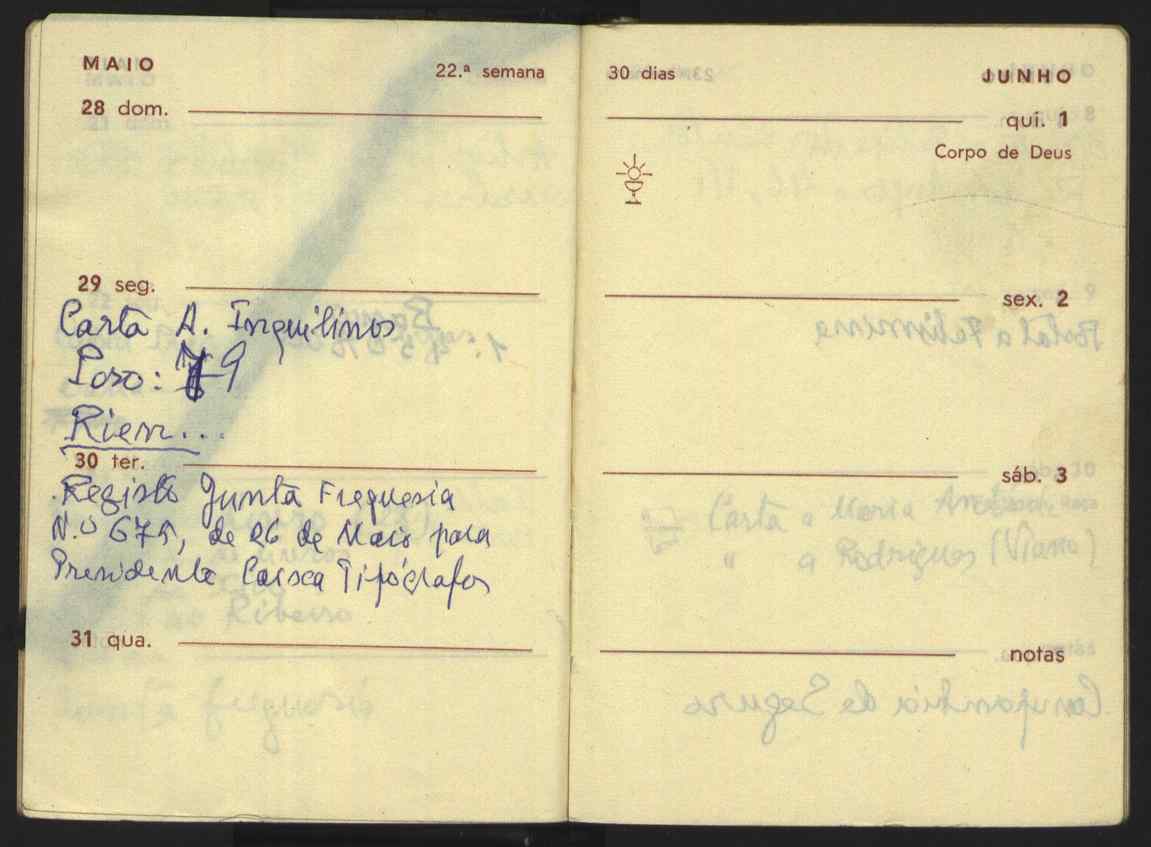 MAIO
22.ª semana
28 dom.
29 seg.
Carta A. Inquilinos
Peso: 79
Rien...
30 ter.
Registo Junta Freguesia
N.º 675, de 26 de Maio para
Presidente Caixa Tipógrafos
31 qua.
30 dias
JUNHO
qui. 1
Corpo de Deus
sex. 2
sáb. 3
Carta a Maria
" a Rodrigues (Viana)
notas